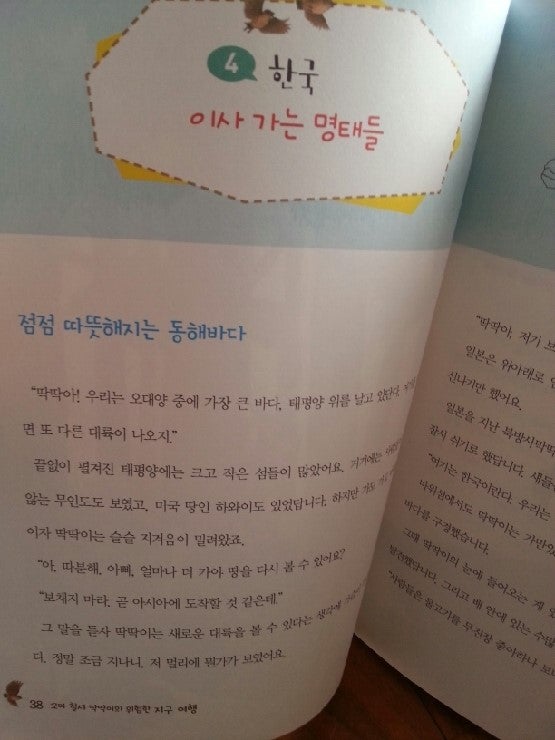 4 한국
이사 가는 명태들
점점 따뜻해지는 동해바다
"딱딱아! 우리는 오대양 중에 가장 큰 바다, 태평양 위를 날고 있단다.
면 또 다른 대륙이 나오지."
끝없이 펼져진 태평양에는 크고 작은 섬들이 많았어요. 거기에는
않는 무인도도 보였고, 미국 땅인 하와이도 있었답니다. 하지만 가도
이자 딱딱이는 슬슬 지겨움이 밀려왔죠.
"아, 따분해. 아빠, 얼마나 더 가야 땅을 다시 볼 수 있어요?
"보채지 마라. 곧 아시아에 도착할 것 같은데."
그 말을 듣사 딱딱이는 새로운 대륙을 볼 수 있다는 생각에
다. 정말 조금 지나니, 저 멀리에 뭔가가 보였어요.
38 지구 여행
"딱딱아, 저기
일본은 위아래로
신나기만 했어요.
일본을 지난 북방사막딱
잠시 쉬기로 했답니다. 새들
"여기는 한국이란다. 우리는
바위섬에서도 딱딱이는 가만있
바다를 구경했습니다.
그때 딱딱이의 눈에 들어오는 게 있
발견했답니다. 그리고 배 안에 있는 수많
"사람들은 물고기를 무진장 좋아하나